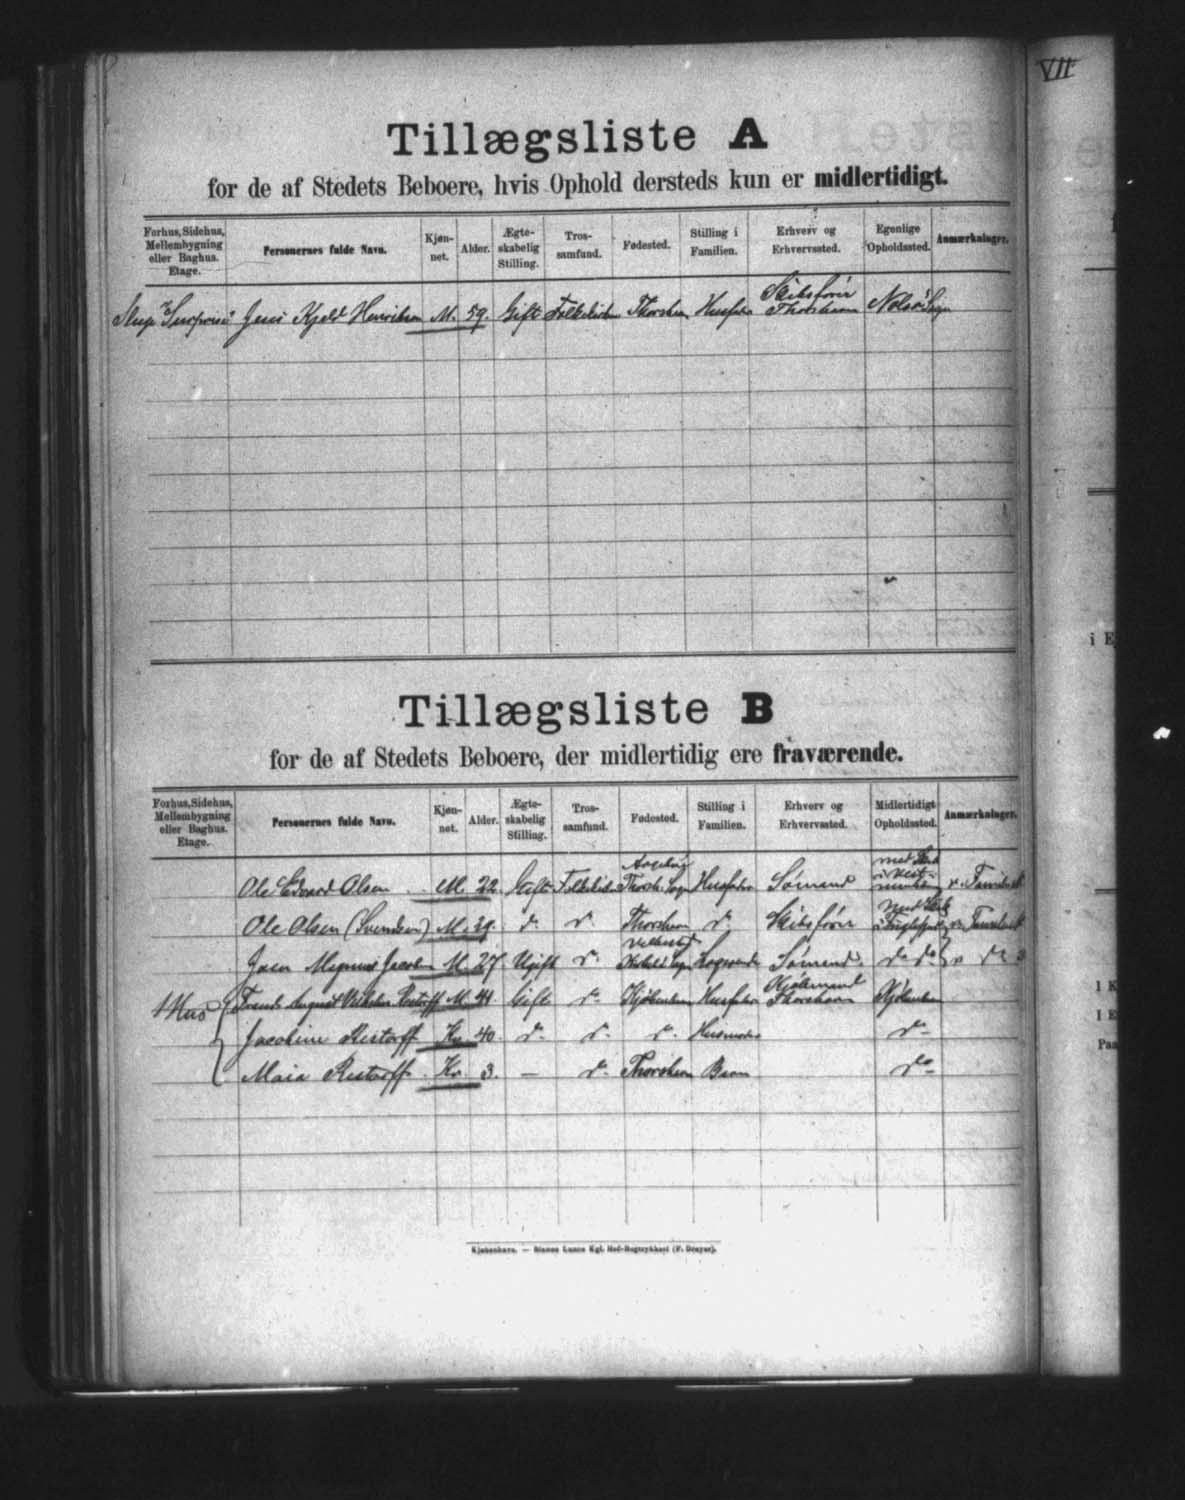 VII
Tillægsliste A
for de af Stedets Beboere, hvis Ophold dersteds kun er midlertidigt.
Forhus, Sidehus, Mellembygning eller Baghus. Etage. Personernes fulde Navn. Kjøn-net. Alder. Ægte-skabelig Stilling. Tros-samfund. Fødested. Stilling i Familien. Erhverv og Erhvervssted. Egenlige Opholdssted. Anmærkninger.
Slup "Surprise" Jens Kjeld Henriksen M. 59. Gift Folkekirken Thorshavn Husfader Skibsfører Thorshavn Nolsø Sogn
Tillægsliste B
for de af Stedets Beboere, der midlertidig ere fraværende.
Forhus, Sidehus, Mellembygning eller Baghus. Etage. Personernes fulde Navn. Kjøn-net. Alder. Ægte-skabelig Stilling. Tros-samfund. Fødested. Stilling i Familien. Erhverv og Erhvervssted. Midlertidigt Opholdssted. Anmærkninger.
Ole Edvard Olsen M. 22. Gift Folkekirken Thorsh. Sogn Husfader Sømand med
Ole Olsen (Svendsen) M. 39. do do Thorshavn do Skibsfører med
Joen Magnus Jacobsen M. 27 Ugift do Logerende Sømand. do do
1 Hus Frants August Vilhelm Restorff M. 41. Gift do Kjøbenhavn Husfader Kjøbmand Thorshavn Kjøbenhavn
Jacobine Restorff Kv. 40. do do do Husmoder do
Maia Restorff. Kv. 3. — do Thorshavn Barn do
Kjøbenhavn. — Bianco Lunos Kgl. Hof-Bogtrykkeri (F. Dreyer).
i E
1 K
1 E
Paa